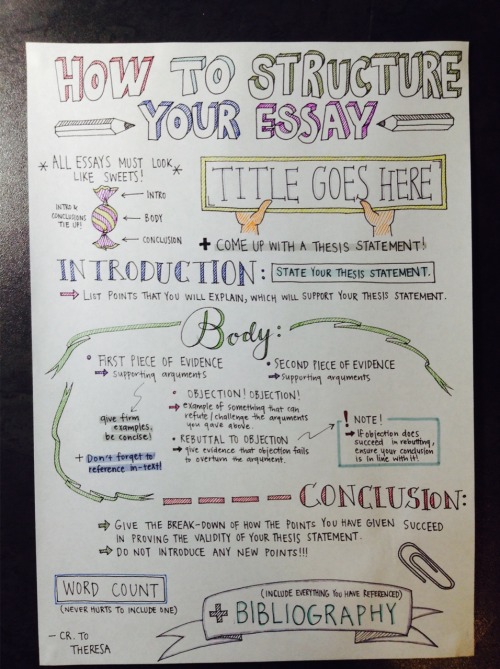 HOW TO STRUCTURE
YOUR ESSAY
* ALL ESSAYS MUST LOOK
LIKE SWEETS! *
INTRO &
CONCLUSIONS
TIE UP!
INTRO
BODY
CONCLUSION
TITLE GOES HERE
+ COME UP WITH A THESIS STATEMENT!
INTRODUCTION: STATE YOUR THESIS STATEMENT.
⇒ LIST POINTS THAT YOU WILL EXPLAIN, WHICH WILL SUPPORT YOUR THESIS STATEMENT.
Body:
• FIRST PIECE OF EVIDENCE
⇒ supporting arguments
• SECOND PIECE OF EVIDENCE
⇒ supporting arguments
give firm
examples,
be concise!
+ Don't forget to
reference in-text!
• OBJECTION! OBJECTION!
⇒ example of something that can
refute/challenge the arguments
you gave above.
• REBUTTAL TO OBJECTION
⇒ give evidence that objection fails
to overturn the argument.
! NOTE!
⇒ If objection does
succeed in rebutting,
ensure your conclusion
is in line with it!
CONCLUSION:
⇒ GIVE THE BREAK-DOWN OF HOW THE POINTS YOU HAVE GIVEN SUCCEED
IN PROVING THE VALIDITY OF YOUR THESIS STATEMENT.
⇒ DO NOT INTRODUCE ANY NEW POINTS!!!
WORD COUNT
(NEVER HURTS TO INCLUDE ONE)
(INCLUDE EVERYTHING YOU HAVE REFERENCED)
+ BIBLIOGRAPHY
- CR. TO
THERESA